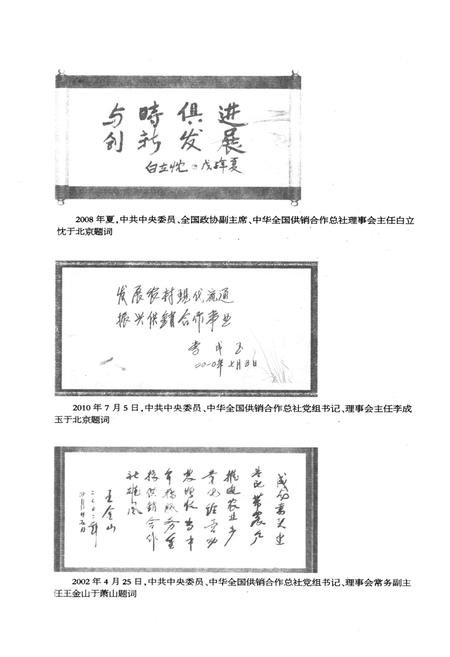 与時俱进
创新发展
白立忱 戊子年夏
2008年夏,中共中央委员、全国政协副主席、中华全国供销合作总社理事会主任白立
忱于北京题词
发展农村现代流通
振兴供销合作事业
李成玉
二〇一〇年七月五日
2010年7月5日,中共中央委员、中华全国供销合作总社党组书记、理事会主任李成
玉于北京题词
王金山
2002年4月25日,中共中央委员、中华全国供销合作总社党组书记、理事会常务副主
任王金山于萧山题词